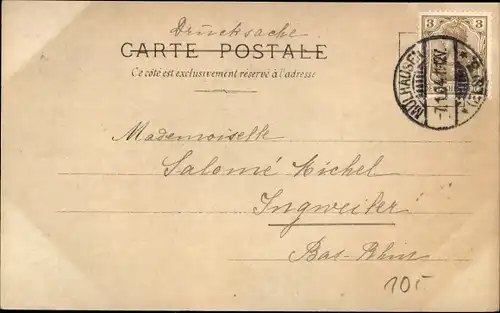 Drucksache
CARTE POSTALE
Ce côté est exclusivement réservé à l'adresse
3 3
MÜLHAUSEN
-7.1.04.
Mademoiselle
Salomé Michel
Ingweiler
Bas-Rhin
105